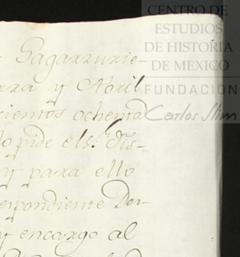 CENTRO DE
ESTUDIOS
DE HISTORIA
DE MEXICO
FUNDACIÓN
Carlos Slim
Gagarzurie-
y Abril
cientos ochenta
lo pide el s.r
y para ello
espondiente Des-
y encargo al